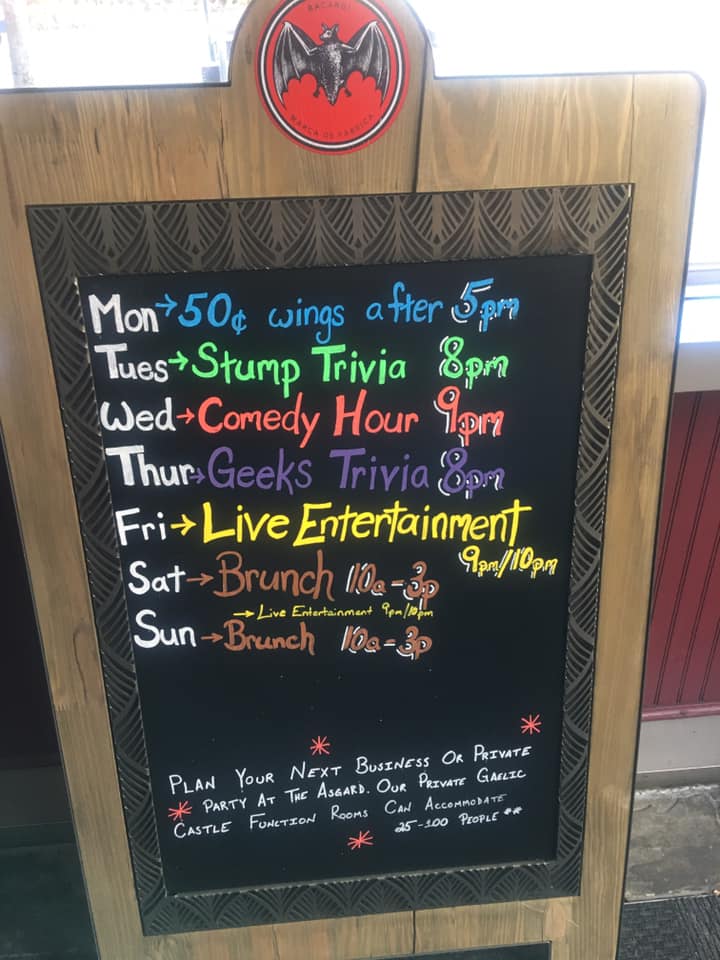 BACARDI
MARCA DE FABRICA
Mon→50¢ wings after 5pm
Tues→Stump Trivia 8pm
Wed→Comedy Hour 9pm
Thur→Geeks Trivia 8pm
Fri→Live Entertainment
9pm/10pm
Sat→Brunch 10a-3p
→Live Entertainment 9pm/10pm
Sun→Brunch 10a-3p
PLAN YOUR NEXT BUSINESS OR PRIVATE
* PARTY AT THE ASGARD. OUR PRIVATE GAELIC
CASTLE FUNCTION ROOMS CAN ACCOMMODATE
25-100 PEOPLE **